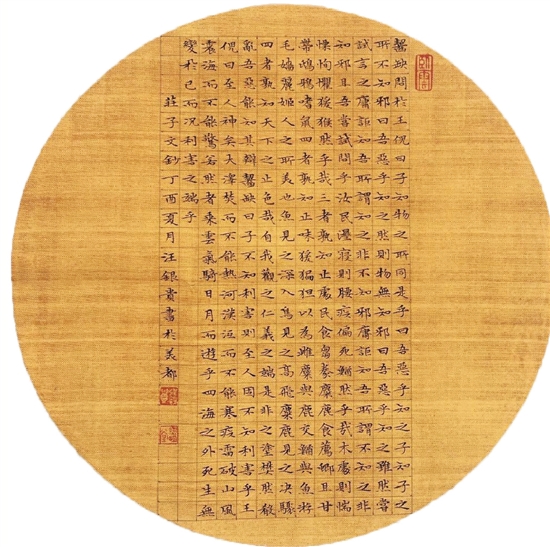 齧缺問於王倪曰子知物之所同是乎曰吾惡乎知之子知子之
所不知邪曰吾惡乎知之然則物無知邪曰吾惡乎知之雖然嘗
試言之庸詎知吾所謂知之非不知邪庸詎知吾所謂不知之非
知邪且吾嘗試問乎汝民溼寢則腰疾偏死鰌然乎哉木處則惴
慄恂懼猨猴然乎哉三者孰知正處民食芻豢麋鹿食薦蝍且甘
帶鴟鴉嗜鼠四者孰知正味猨猵狙以為雌麋與鹿交鰌與魚游
毛嬙麗姬人之所美也魚見之深入鳥見之高飛麋鹿見之決驟
四者孰知天下之正色哉自我觀之仁義之端是非之塗樊然殽
亂吾惡能知其辯齧缺曰子不知利害則至人固不知利害乎王
倪曰至人神矣大澤焚而不能熱河漢沍而不能寒疾雷破山風
震海而不能驚若然者乘雲氣騎日月而遊乎四海之外死生無
變於己而況利害之端乎
莊子文鈔丁酉夏月汪銀貴書於美都